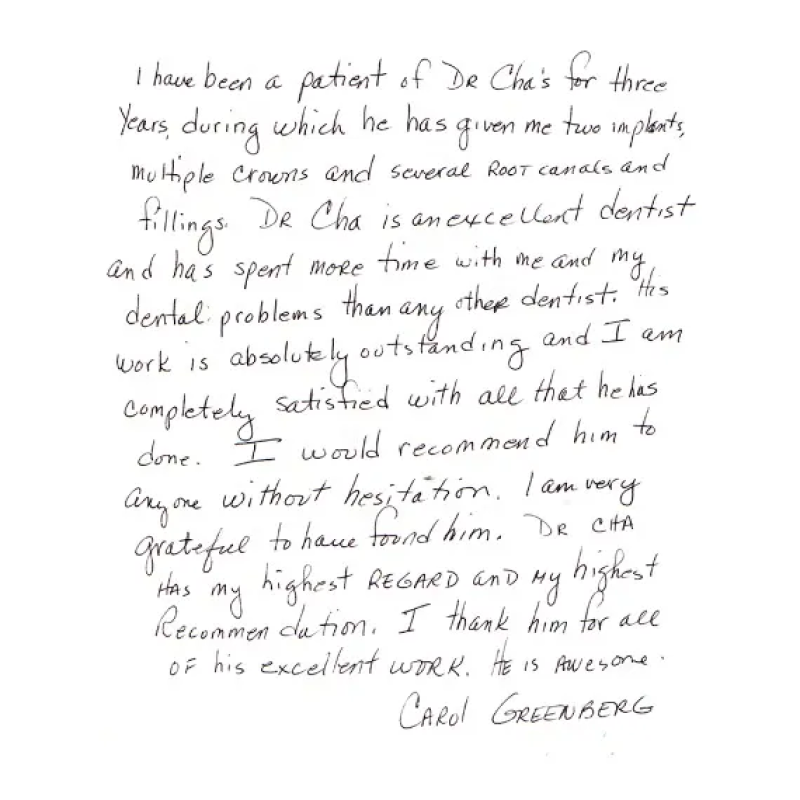 I have been a patient of DR Cha's for three
Years, during which he has given me two implants,
multiple crowns and several ROOT canals and
fillings. DR Cha is an excellent dentist
and has spent more time with me and my
dental problems than any other dentist. His
work is absolutely outstanding and I am
completely satisfied with all that he has
done. I would recommend him to
anyone without hesitation. I am very
grateful to have found him. DR CHA
HAS my highest REGARD and My highest
Recommendation. I thank him for all
OF his excellent WORK. HE is AWESOME.
CAROL GREENBERG